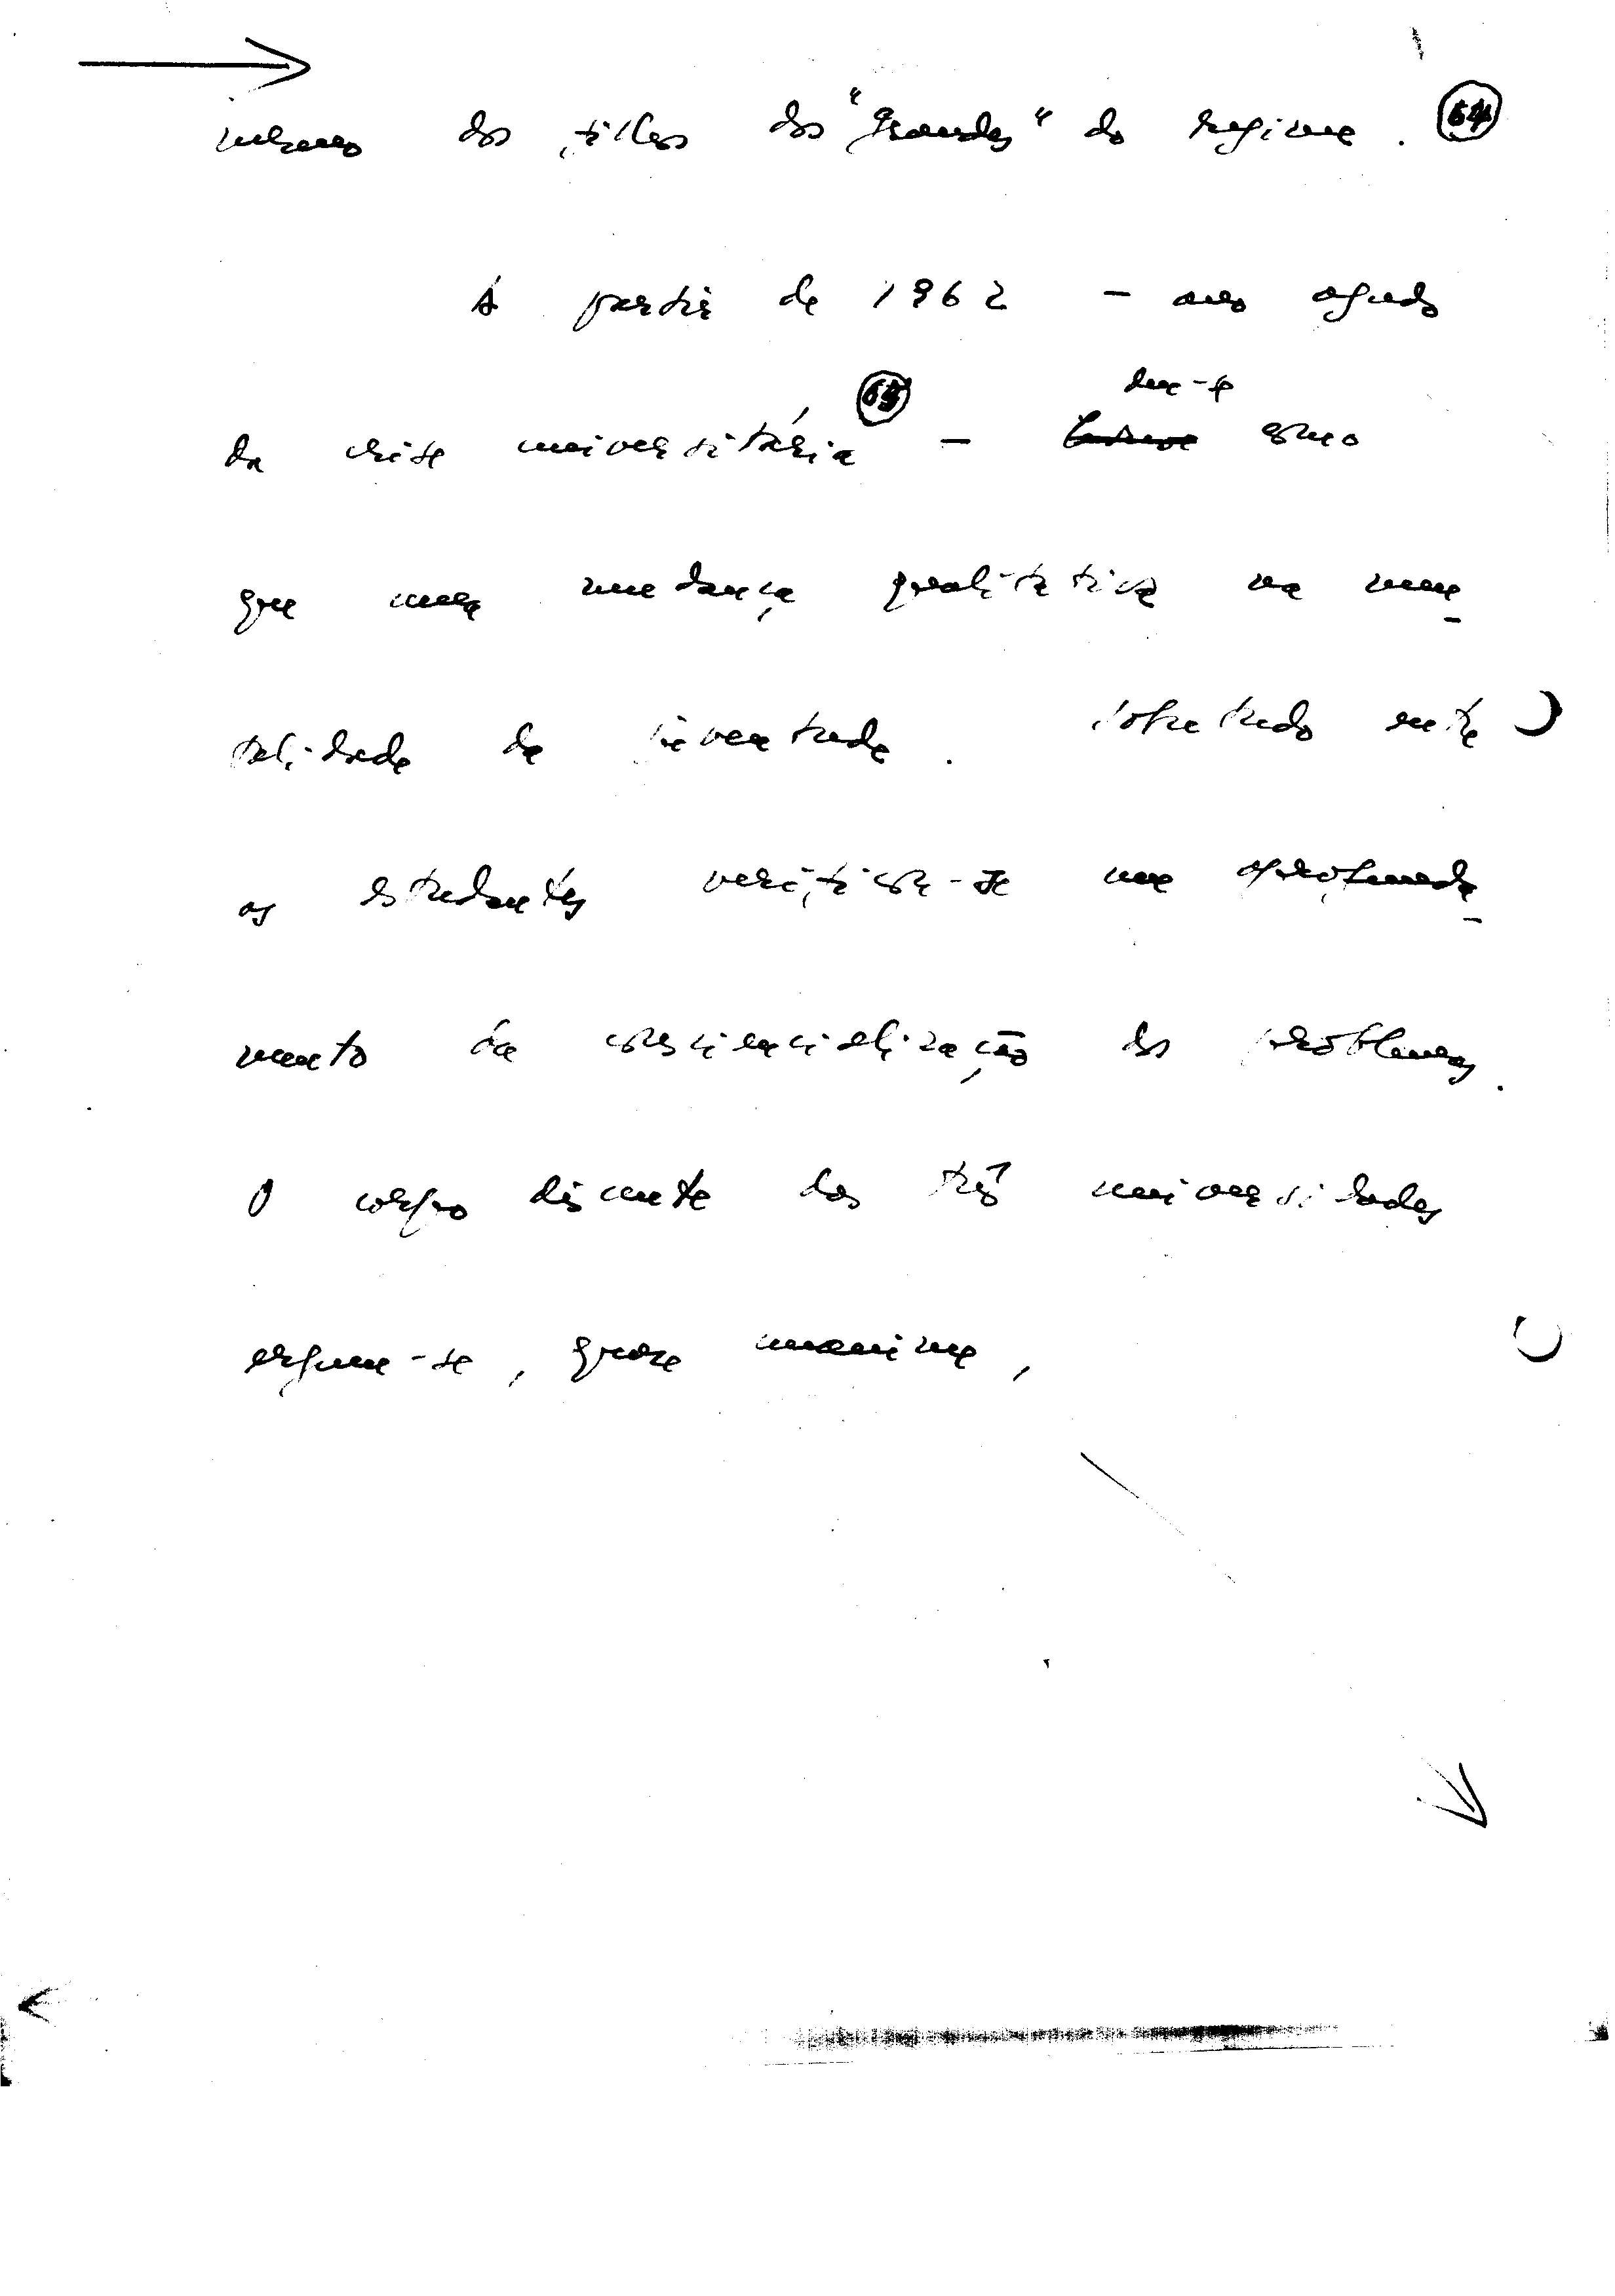 mesmo dos filhos dos "Grandes" do regime. 64
A partir de 1962 - ano agudo
deu-se
da crise universitária 65 - como
que uma mudança qualitativa na men
talidade da juventude. Sobretudo entre
os estudantes verifica-se um aprofunda
mento da consciencialização dos problemas.
O corpo discente das três universidades
ergue-se, quase unânime,